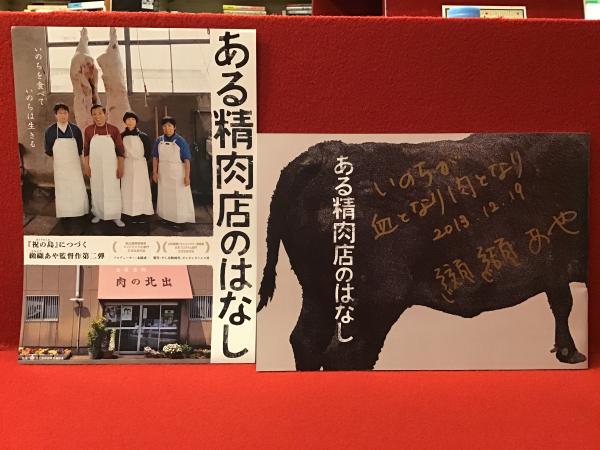 いのちを食べて
いのちは生きる
ある精肉店のはなし
『祝の島』につづく
纐纈あや監督作第二弾
肉の北出
ある精肉店のはなし
いのちが
血となり肉となり
2013.12.19
纐纈あや